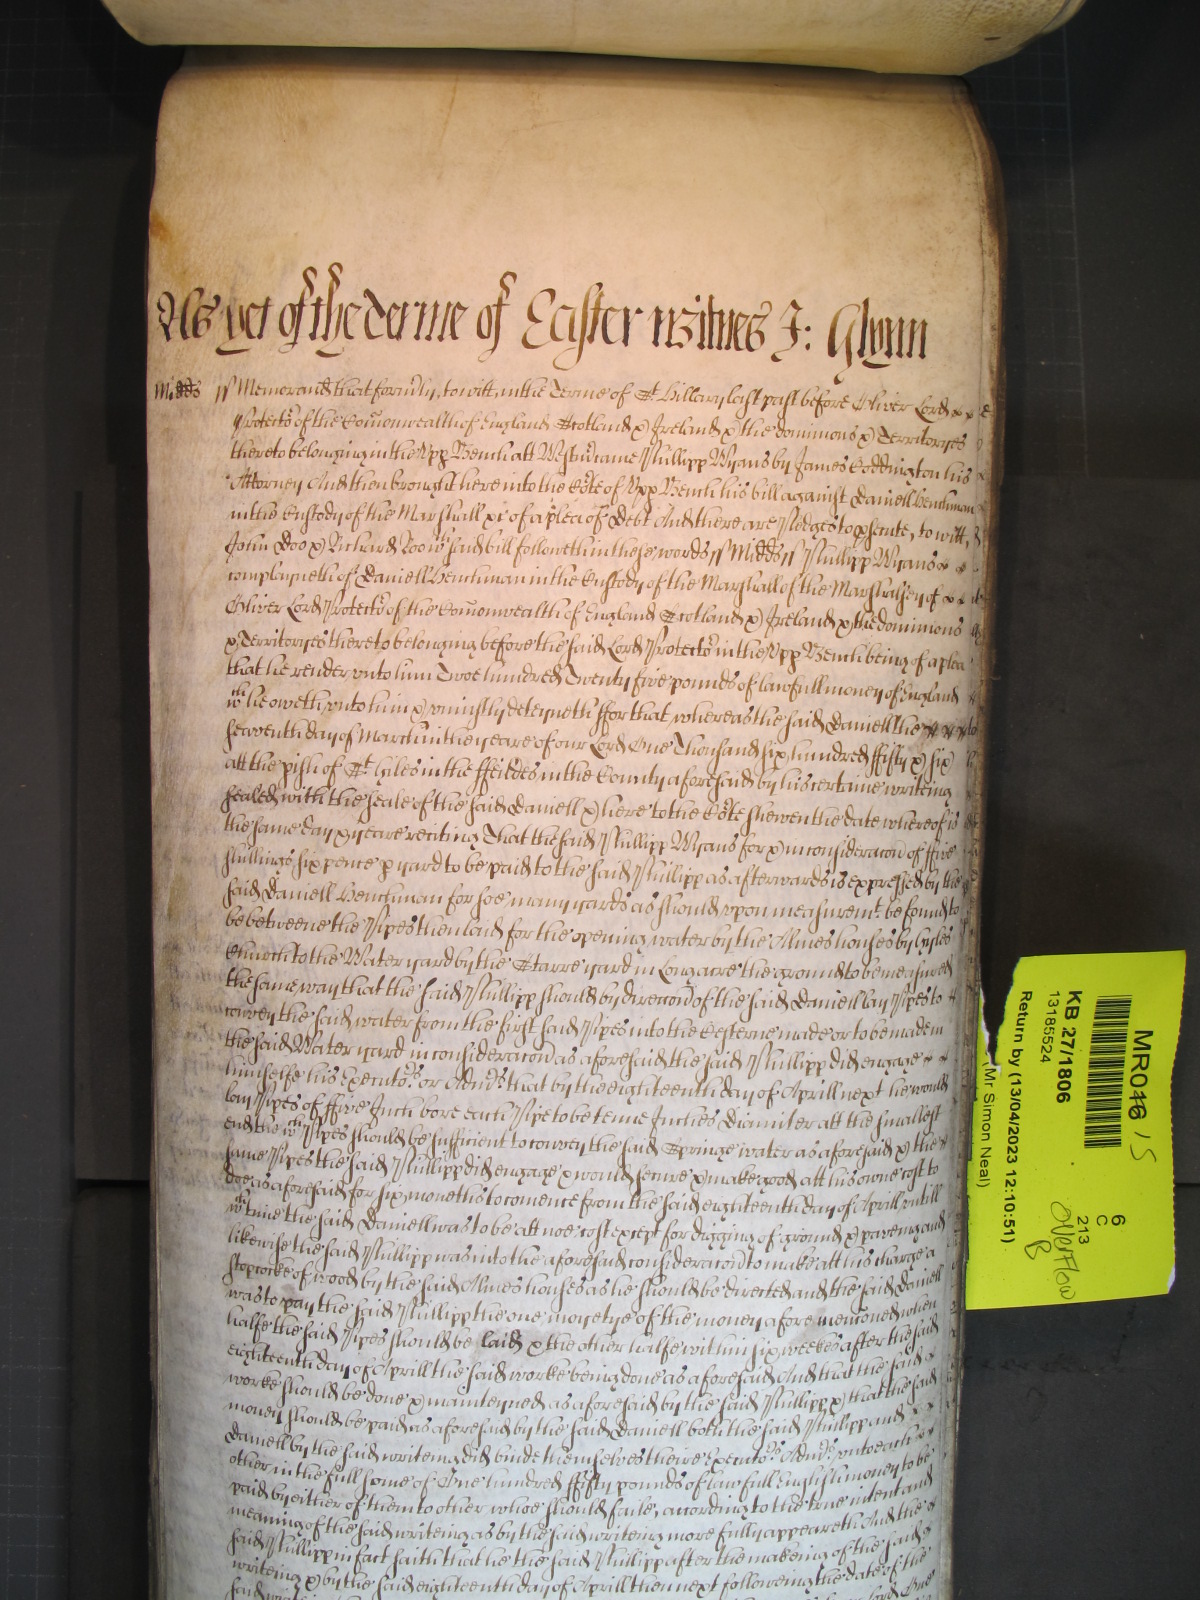 As yet of the Terme of Easter Witnes J: Glynn
Midds ss Memorand that form͠ly, to witt, in the Terme of St Hillary last past before Oliver Lord
Protector of the Com͠onwealth of England Scotland & Ireland & the dominions & Territoryes
thereto belonging in the Upp Bench att Westm͠ came Phillipp Wyans by James Coddington his
Attorney And then brought here into the Co͠te of Upp Bench his bill against Daniell Henchman
in the Custody of the Marshall &c of a plea of Debt And there are Pledges to p͠sente, to witt,
John Doo & Richard Roo wch said bill followeth in these words ss Midds ss Phillipp Wyans
complayneth of Daniell Henchman in the Custody of the Marshall of the Marshalsey of
Oliver Lord Protector of the Com͠onwealth of England Scotland & Ireland & the dominions
& Territoryes thereto belonging before the said Lord Protector in the Upp Bench being of a plea
that he render unto him Twoe hundred Twenty five pounds of lawfull money of England
wch he oweth unto him & uniustly deteyneth ffor that whereas the said Daniell the
seaventh day of March in the yeare of our Lord One Thousand six hundred ffifty & six
att the p͠ish of St Giles in the ffeildes in the County aforesaid by his certaine writeing
sealed with the seale of the said Daniell & here to the Co͠te shewen the date whereof is
the same day & yeare reciting That the said Phillipp Wyans for & in consideracon of ffive
shillings six pence p yard to be paid to the said Phillipp as afterwards is expressed by the
said Daniell Henchman for soe many yards as should upon measuremt. be found to
be betweene the Pipes then laid for the opening water by the Almes houses by Gyles
Church to the Water yard by the Starre yard in Longacre the ground to be measured
the same way that the said Phillipp should by direccon of the said Daniell lay Pipes to
convey the said water from the first said Pipes into the Cesterne made or to be made in
the said Water yard in consideracon as aforesaid the said Phillipp did engage
himselfe his Executors or Admrs that by the eighteenth day of Aprill next he would
lay Pipes of ffive Inch bore each Pipe to be tenne Inches Diamiter att the smallest
end the wch Pipes should be sufficient to convey the said Springe water as aforesaid & the
same Pipes the said Phillipp did engage & would secure & make good att his owne cost to
doe as aforesaid for six moneths to comence from the said eighteenth day of Aprill untill
wch time the said Daniell was to be att noe cost except for digging of ground & paveing and
likewise the said Phillipp was into the aforesaid consideracon to make att his charge a
stopcocke of wood by the said Almes houses as he should be directed and the said Daniell
was to pay the said Phillipp the one moyetye of the money afore menconed when
halfe the said Pipes should be laid & the other halfe within six weekes after the said
eighteenth day of Aprill the said worke being done as aforesaid And that the said
worke should be done & mainteyned as aforesaid by the said Phillipp & that the said
money should be paid as aforesaid by the said Daniell both the said Phillipp and
Daniell by the said writeing did binde themselves theire Executors Admrs unto each
other in the full some of One hundred ffifty pounds of lawfull English money to be
paid by either of them to other whoe should faile, according to the true intent and
meaning of the said writeing as by the said writeing more fully appeareth And the
said Phillipp in fact saith that he the said Phillipp after the makeing of the said
writeing & by the said eighteenth day of Aprill then next followeing the date of the
said
MR046
15
KB 27/1806
13185524
Return by (13/04/2023 12:10:51)
Mr Simon Neal)
6
C
213
Overflow
B